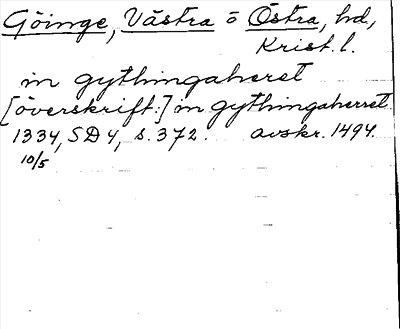 Göinge, Västra o Östra, hd,
Krist. l.
in gythingaheret
[överskrift:] in gythingaherret
1334, SD 4, s. 372. avskr. 1494.
10/5